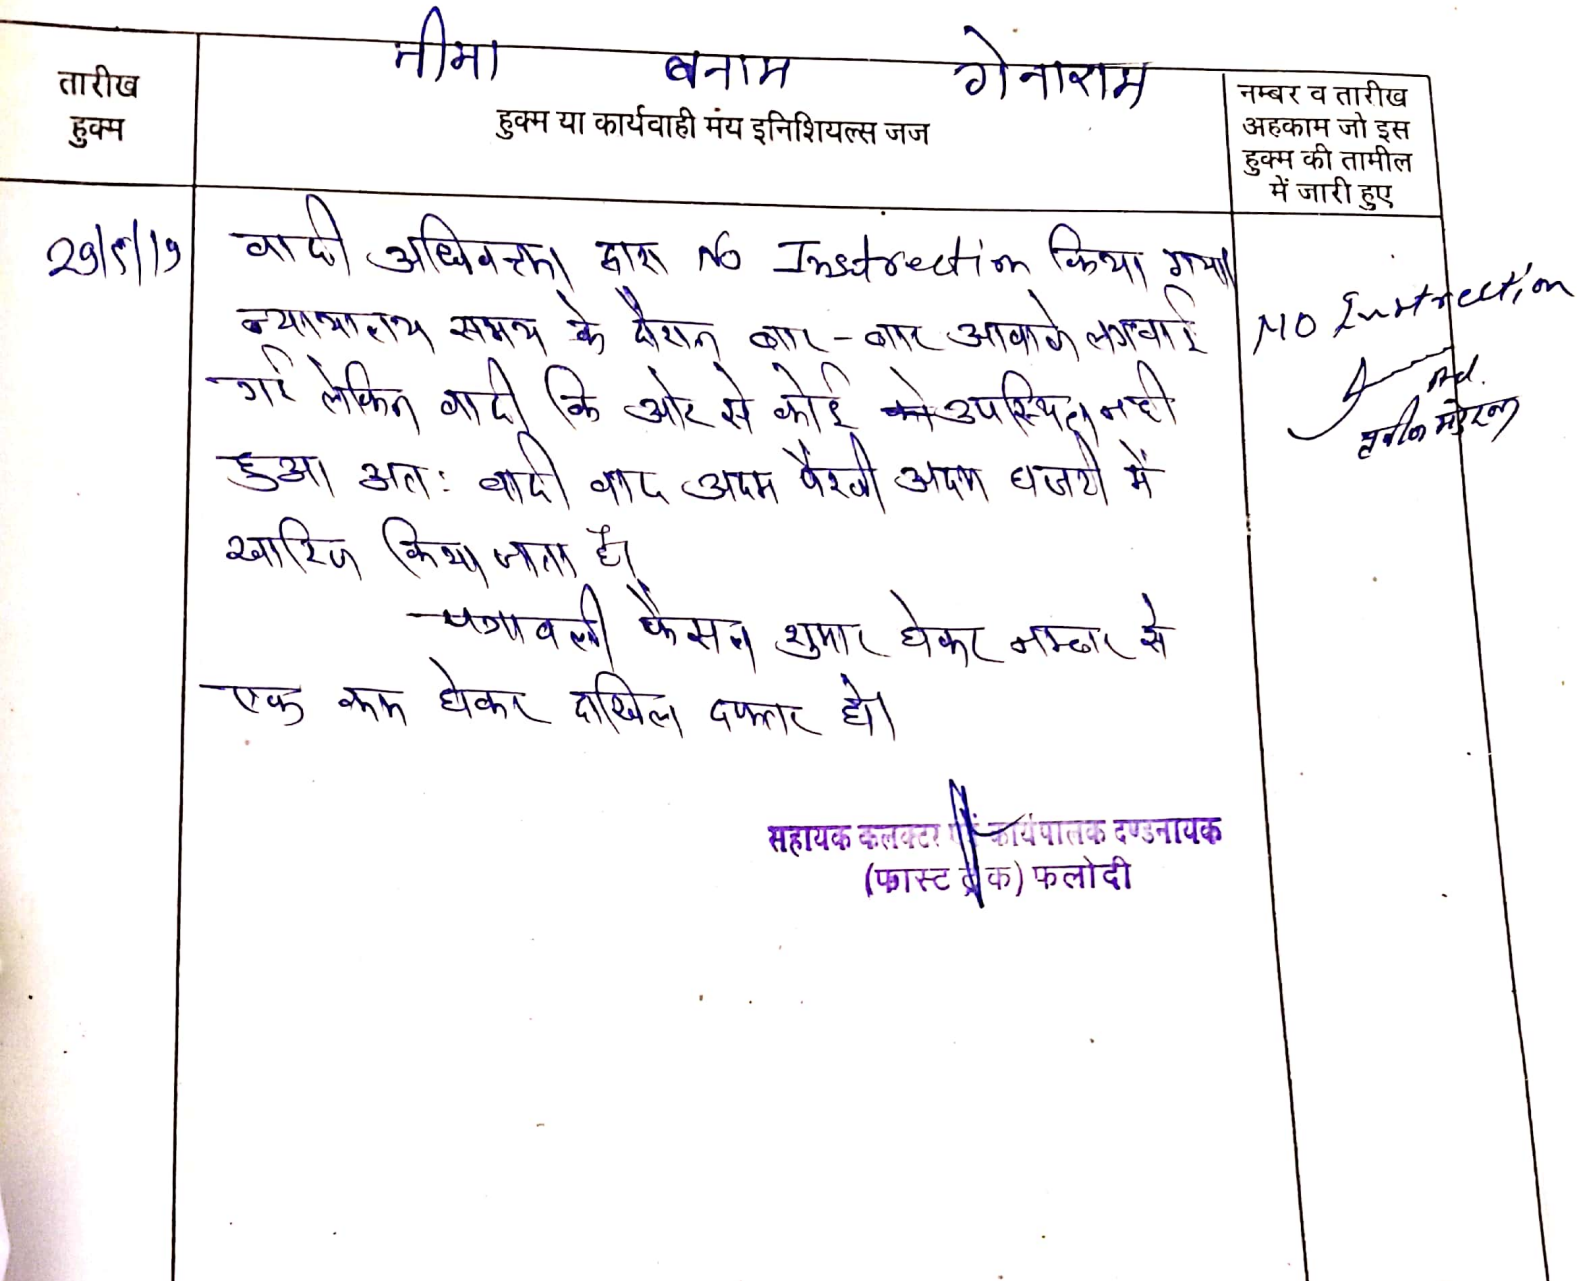 नीमा बनाम गेनाराम
तारीख
हुक्म
हुक्म या कार्यवाही मंय इनिशियल्स जज
नम्बर व तारीख
अहकाम जो इस
हुक्म की तामील
में जारी हुए
29/5/19
वादी अधिवक्ता द्वारा No Instrection किया गया
न्यायालय समय के दौरान बार-बार आवाजे लगवाई
गई लेकिन वादी कि ओर से कोई उपस्थित नही
हुआ अतः वादी वाद अदम पैरवी अदम हाजरी में
खारिज किया जाता है।
पत्रावली फैसल शुमार होकर नम्बर से
एक कम होकर दाखिल दफ्तर हो।
NO Instrection
Ad.
सहायक कलक्टर एवं कार्यपालक दण्डनायक
(फास्ट ट्रेक) फलोदी